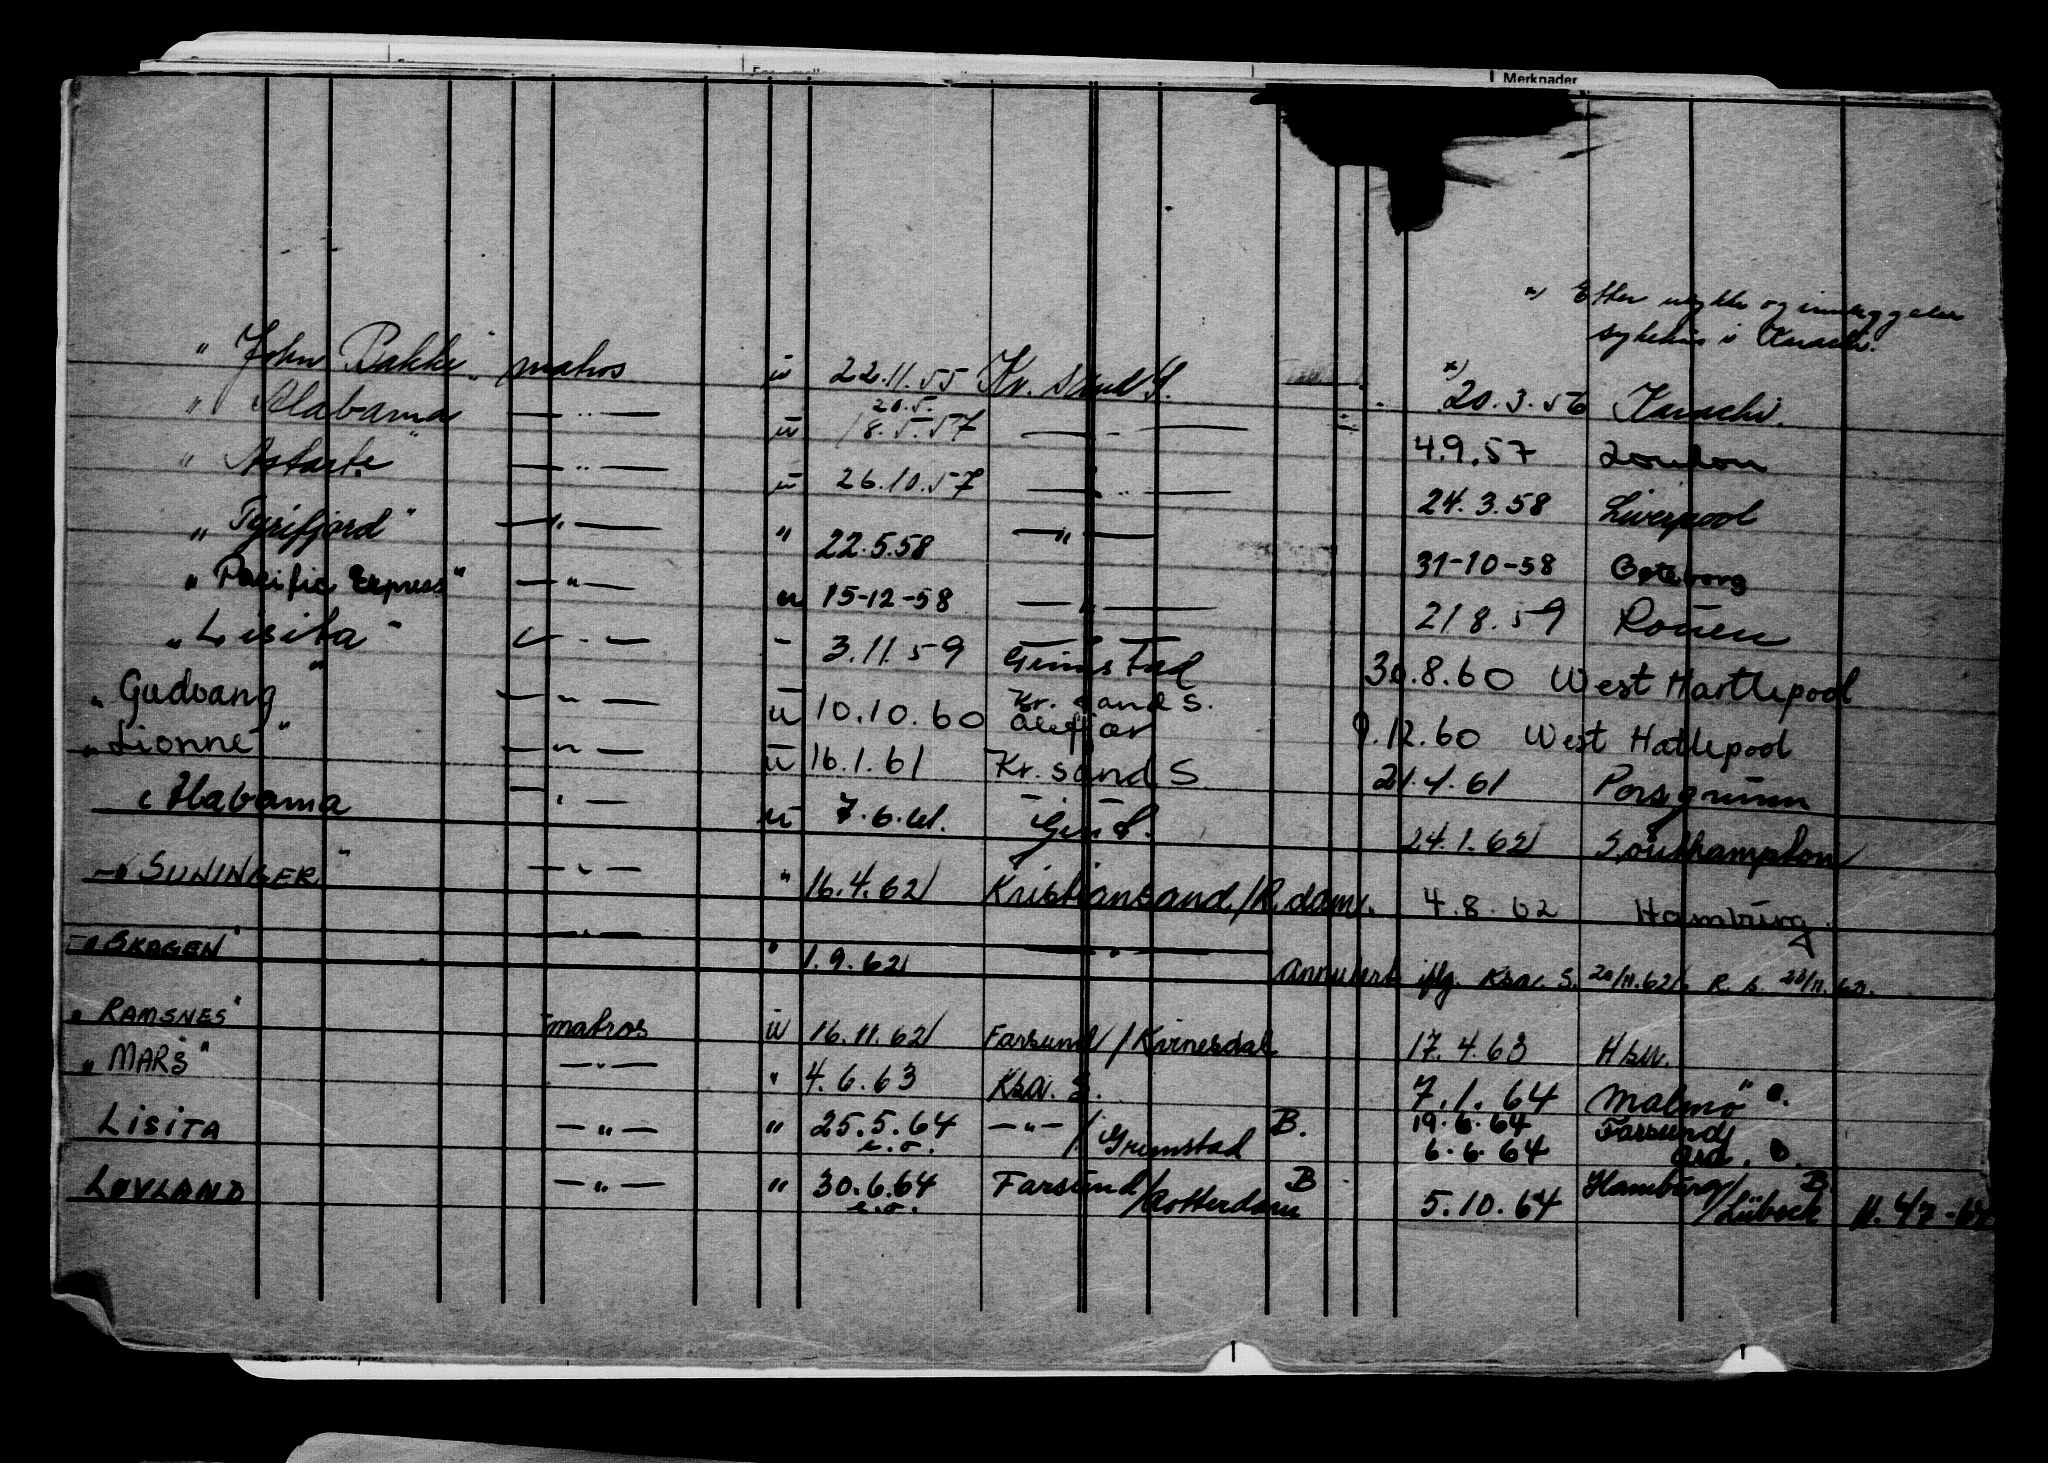 Merknader
x) Etter ulykke og innleggelse
sykehus i Karachi.
" John Bakke " matros u 22.11.55 Kr. sand S. x) 20.3.56 Karachi.
" Alabama — " — u 20.5. 18.5.57 — " — 4.9.57 London
" Astarte " — " — u 26.10.57 — " — 24.3.58 Liverpool
" Tyrifjord " — " — " 22.5.58 — " — 31-10-58 Gøteborg
" Pacific Express " — " — u 15-12-58 — " — 21 8.59 Rouen
" Lisita " — " — " 3.11.59 Grimstad 30.8.60 West Hartlepool
" Gudvang " — " — u 10.10.60 Kr. sand S. Ålefjær 9.12.60 West Hatlepool
" Lionne " — " — u 16.1.61 Kr. sand S 21.4.61 Porsgrunn
" Alabama — " — u 7.6.61. 24.1.62 Southampton
" SUNINGER " — " — " 16.4.62 Kristiansand/R.dam. 4.8.62 Hamburg.
" SKAGEN " — " — " 1.9.62 — " — Annullert iflg. Ksa. S. 20/11.62
" RAMSNES " matros u 16.11.62 Farsund/Kvinesdal 17.4.63
" MARS " — " — " 4.6.63 Ksa. S. 7.1.64 Malmö
LISITA — " — " 25.5.64 — " — / Grimstad B. 19.6.64 Farsund
e.o. 6.6.64
LØVLAND — " — " 30.6.64 Farsund/Rotterdam B 5.10.64 Hamburg/Lübeck B
e.o.